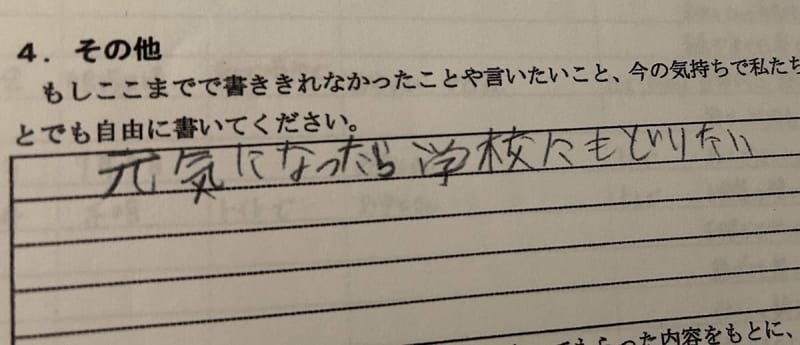 4．その他
もしここまでで書ききれなかったことや言いたいこと、今の気持ちで私たち
とでも自由に書いてください。
元気になったら学校にもどりたい
もらった内容をもとに、